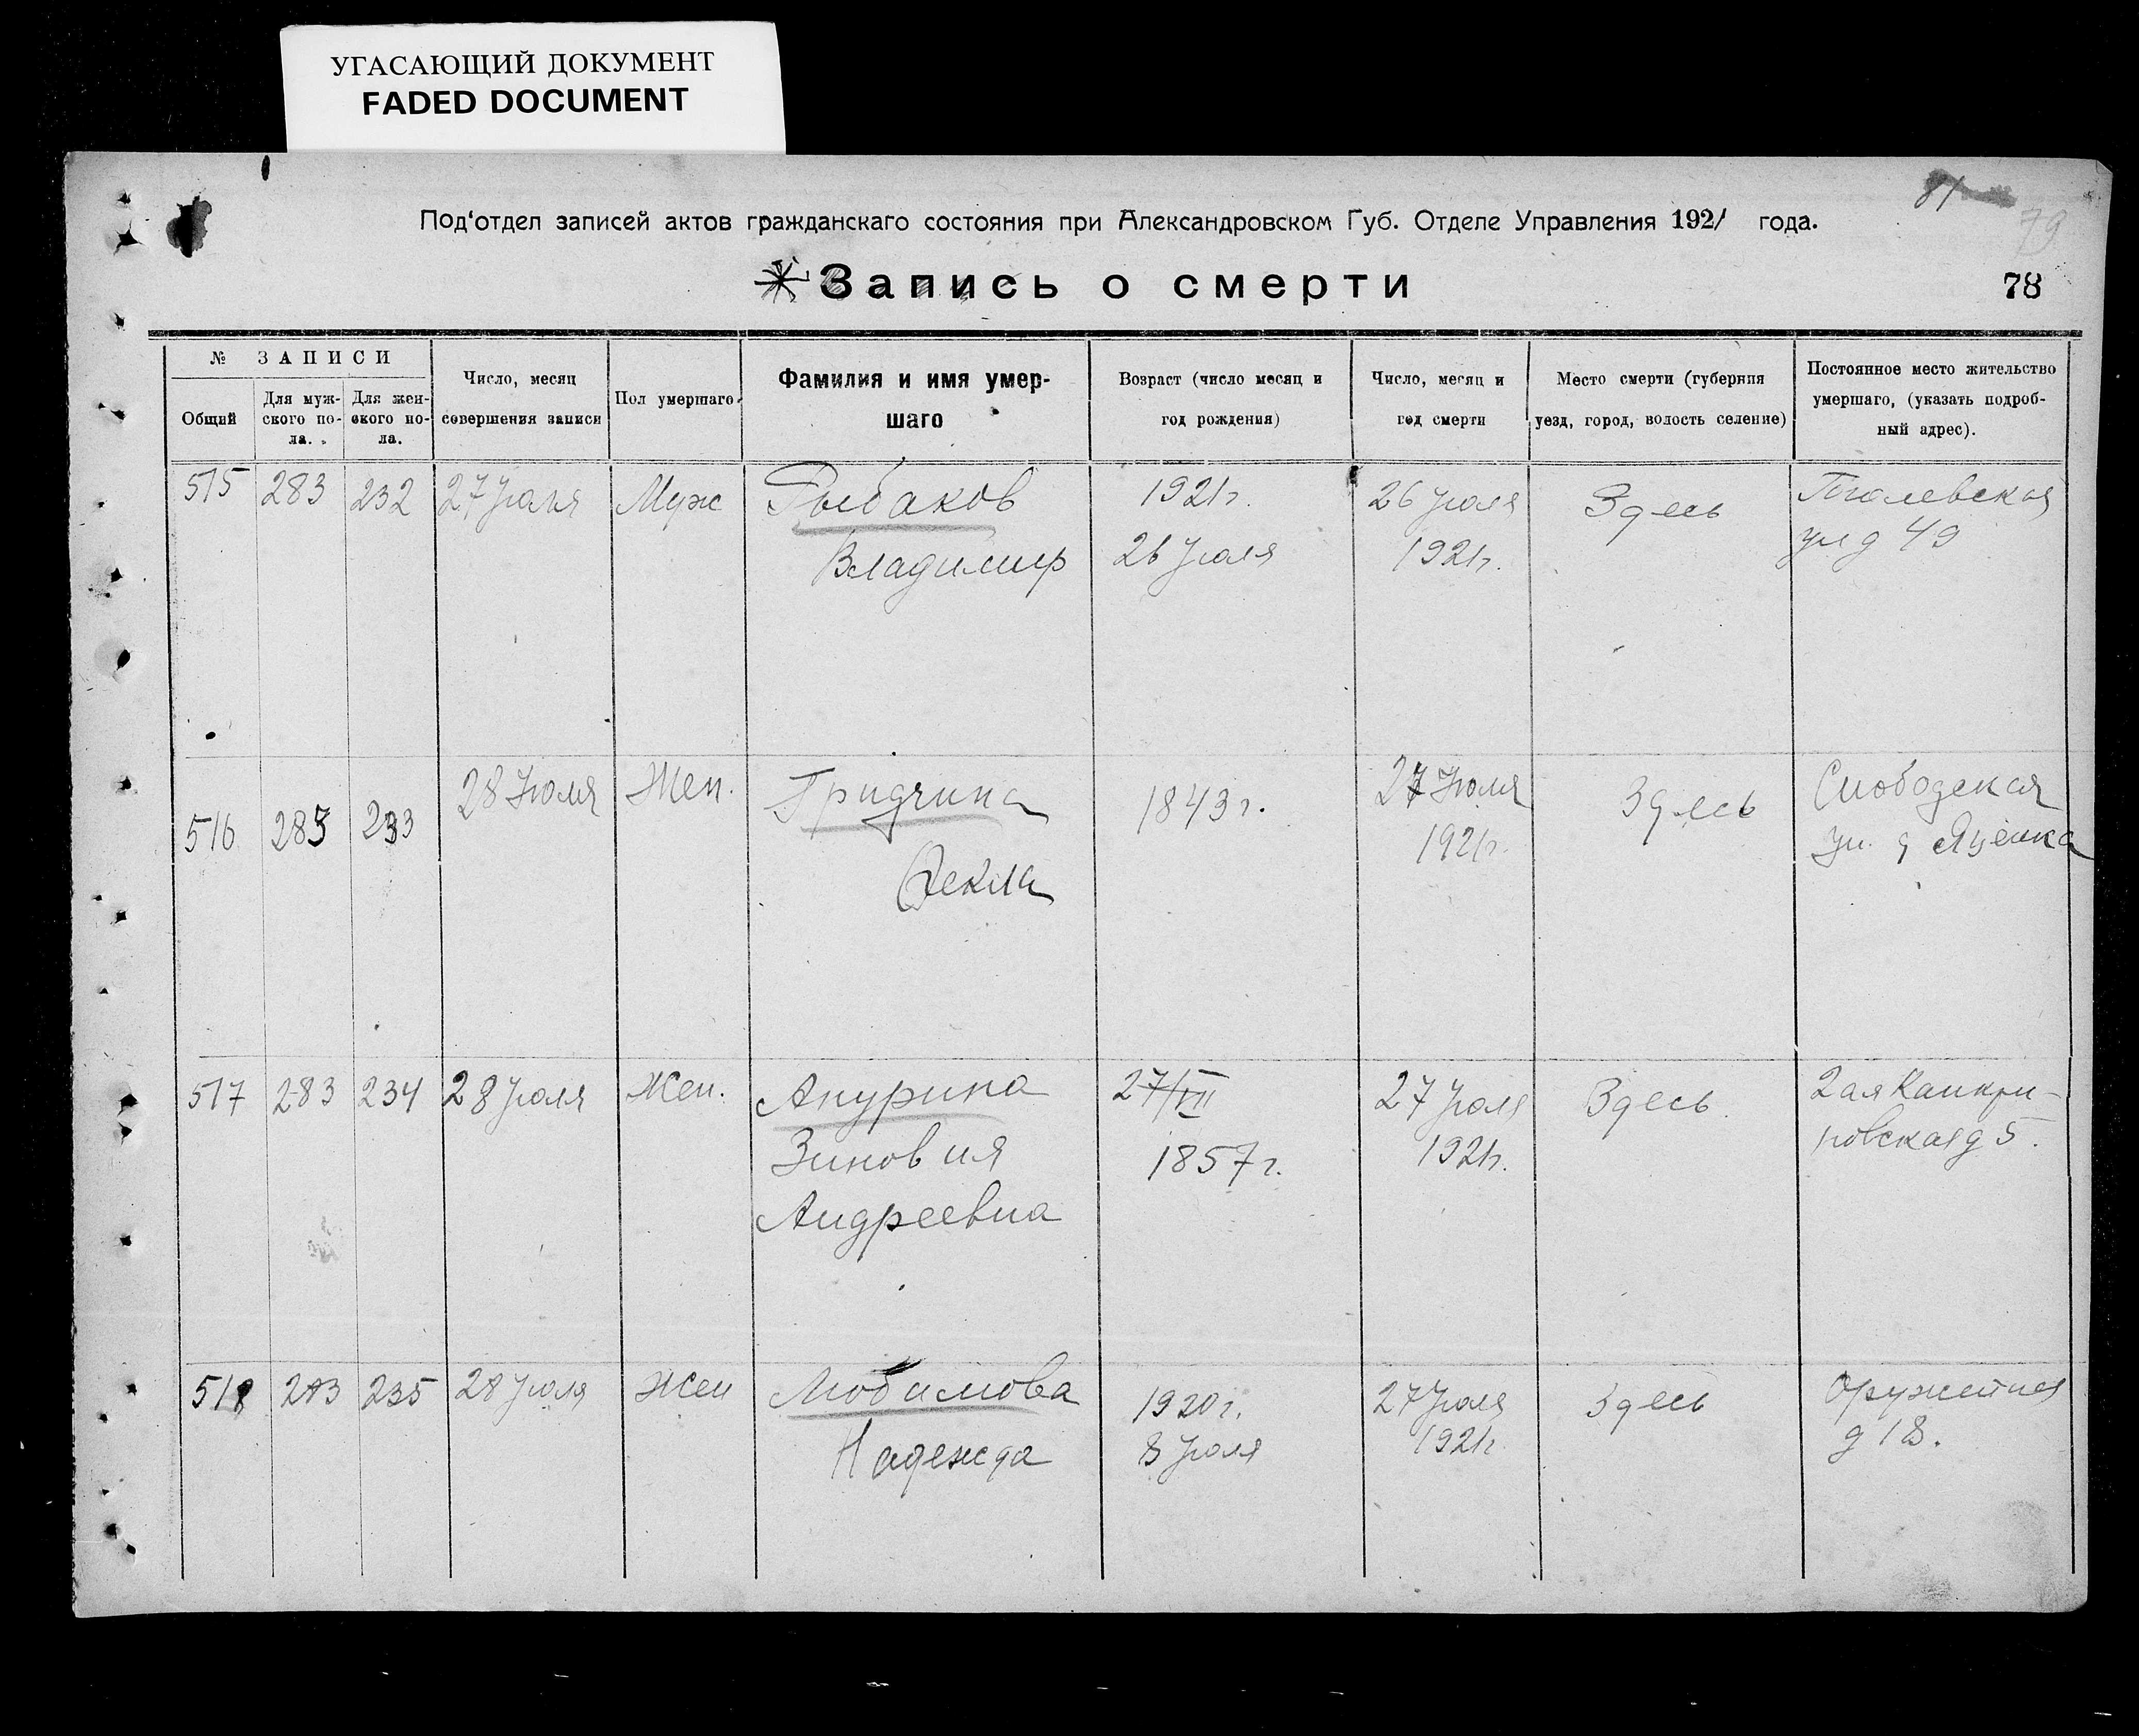 УГАСАЮЩИЙ ДОКУМЕНТ
FADED DOCUMENT
81
79
Под'отдел записей актов гражданскаго состояния при Александровском Губ. Отделе Управления 1921 года.
Запись о смерти
78
№ ЗАПИСИ
Общий
Для муж-
ского по-
ла.
Для жен-
ского по-
ла.
Число, месяц
совершения записи
Пол умершаго
Фамилия и имя умер-
шаго
Возраст (число месяц и
год рождения)
Число, месяц и
год смерти
Место смерти (губерния
уезд, город, волость селение)
Постоянное место жительство
умершаго, (указать подроб-
ный адрес).
515 283 232 27 Июля Муж Рыбаков 1921г. 26 Июля Здесь
Владимир 26 Июля 1921г. ул д 49
516 283 233 28 Июля Жен. Гридчина 1843 г. 27 Июля Здесь Слободская
Фекла 1921г. ул. д Яценка
517 283 234 28 Июля Жен. Анурина 27/VII 27 Июля Здесь. 2ая Канкри-
Зиновия 1857 г. 1921г. новская д 5.
Андреевна
518 283 235 28 Июля Жен Любимова 1920 г. 27 Июля Здесь Оружейная
Надежда 8 Июля 1921г. д 18.